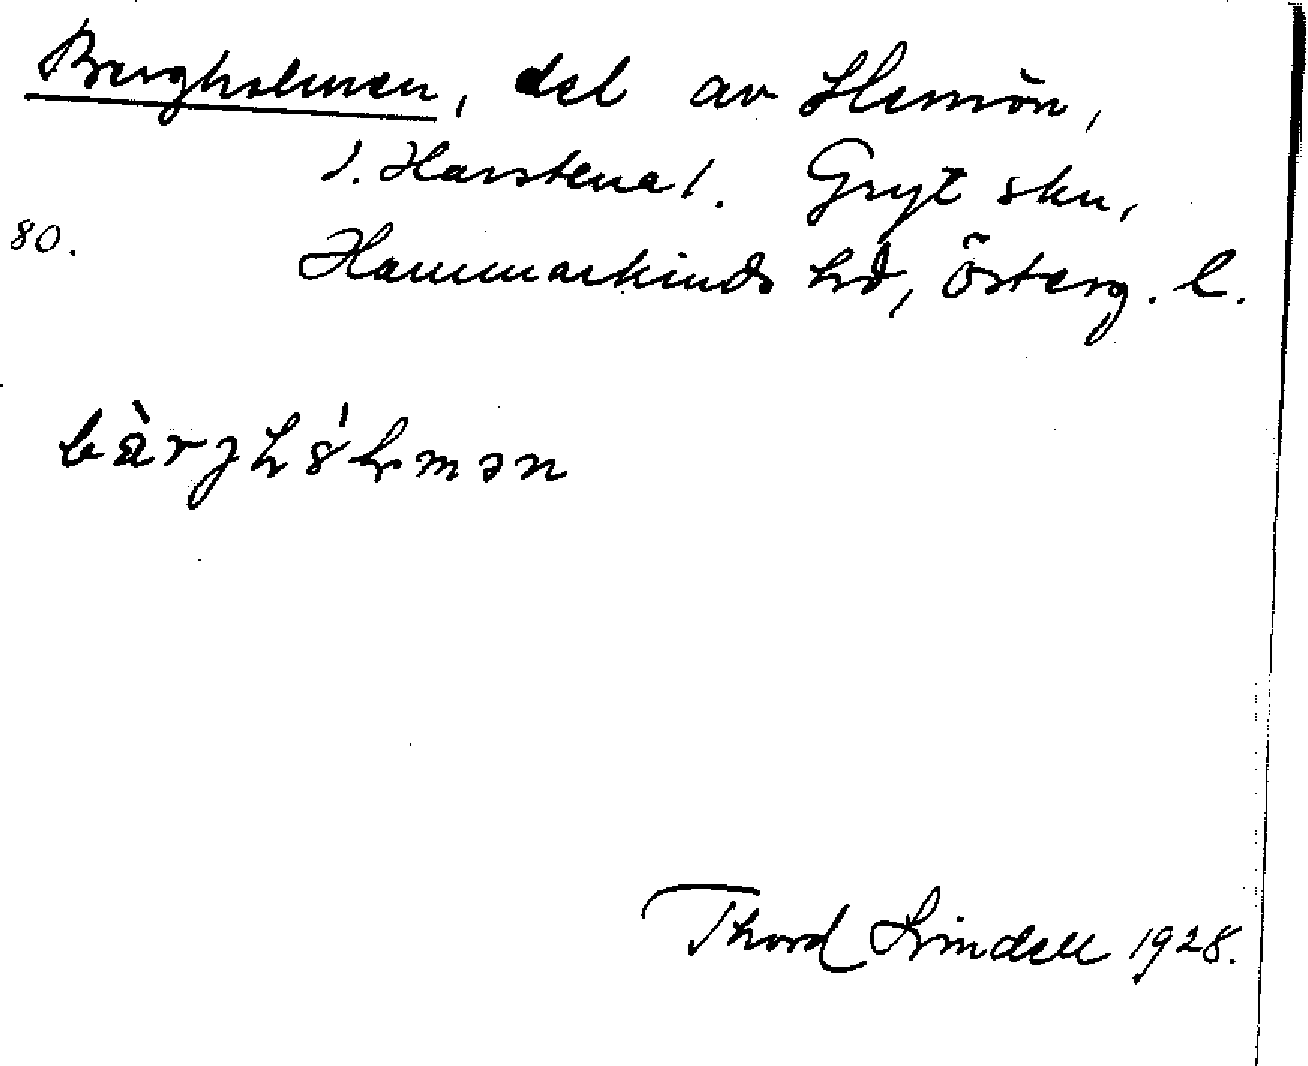 Bergholmen, del av Hemön,
/. Harstena /. Gryt skn,
80. Hammarkinds hd, Österg. l.
bàrjhólmən
Thord Lindell 1928.